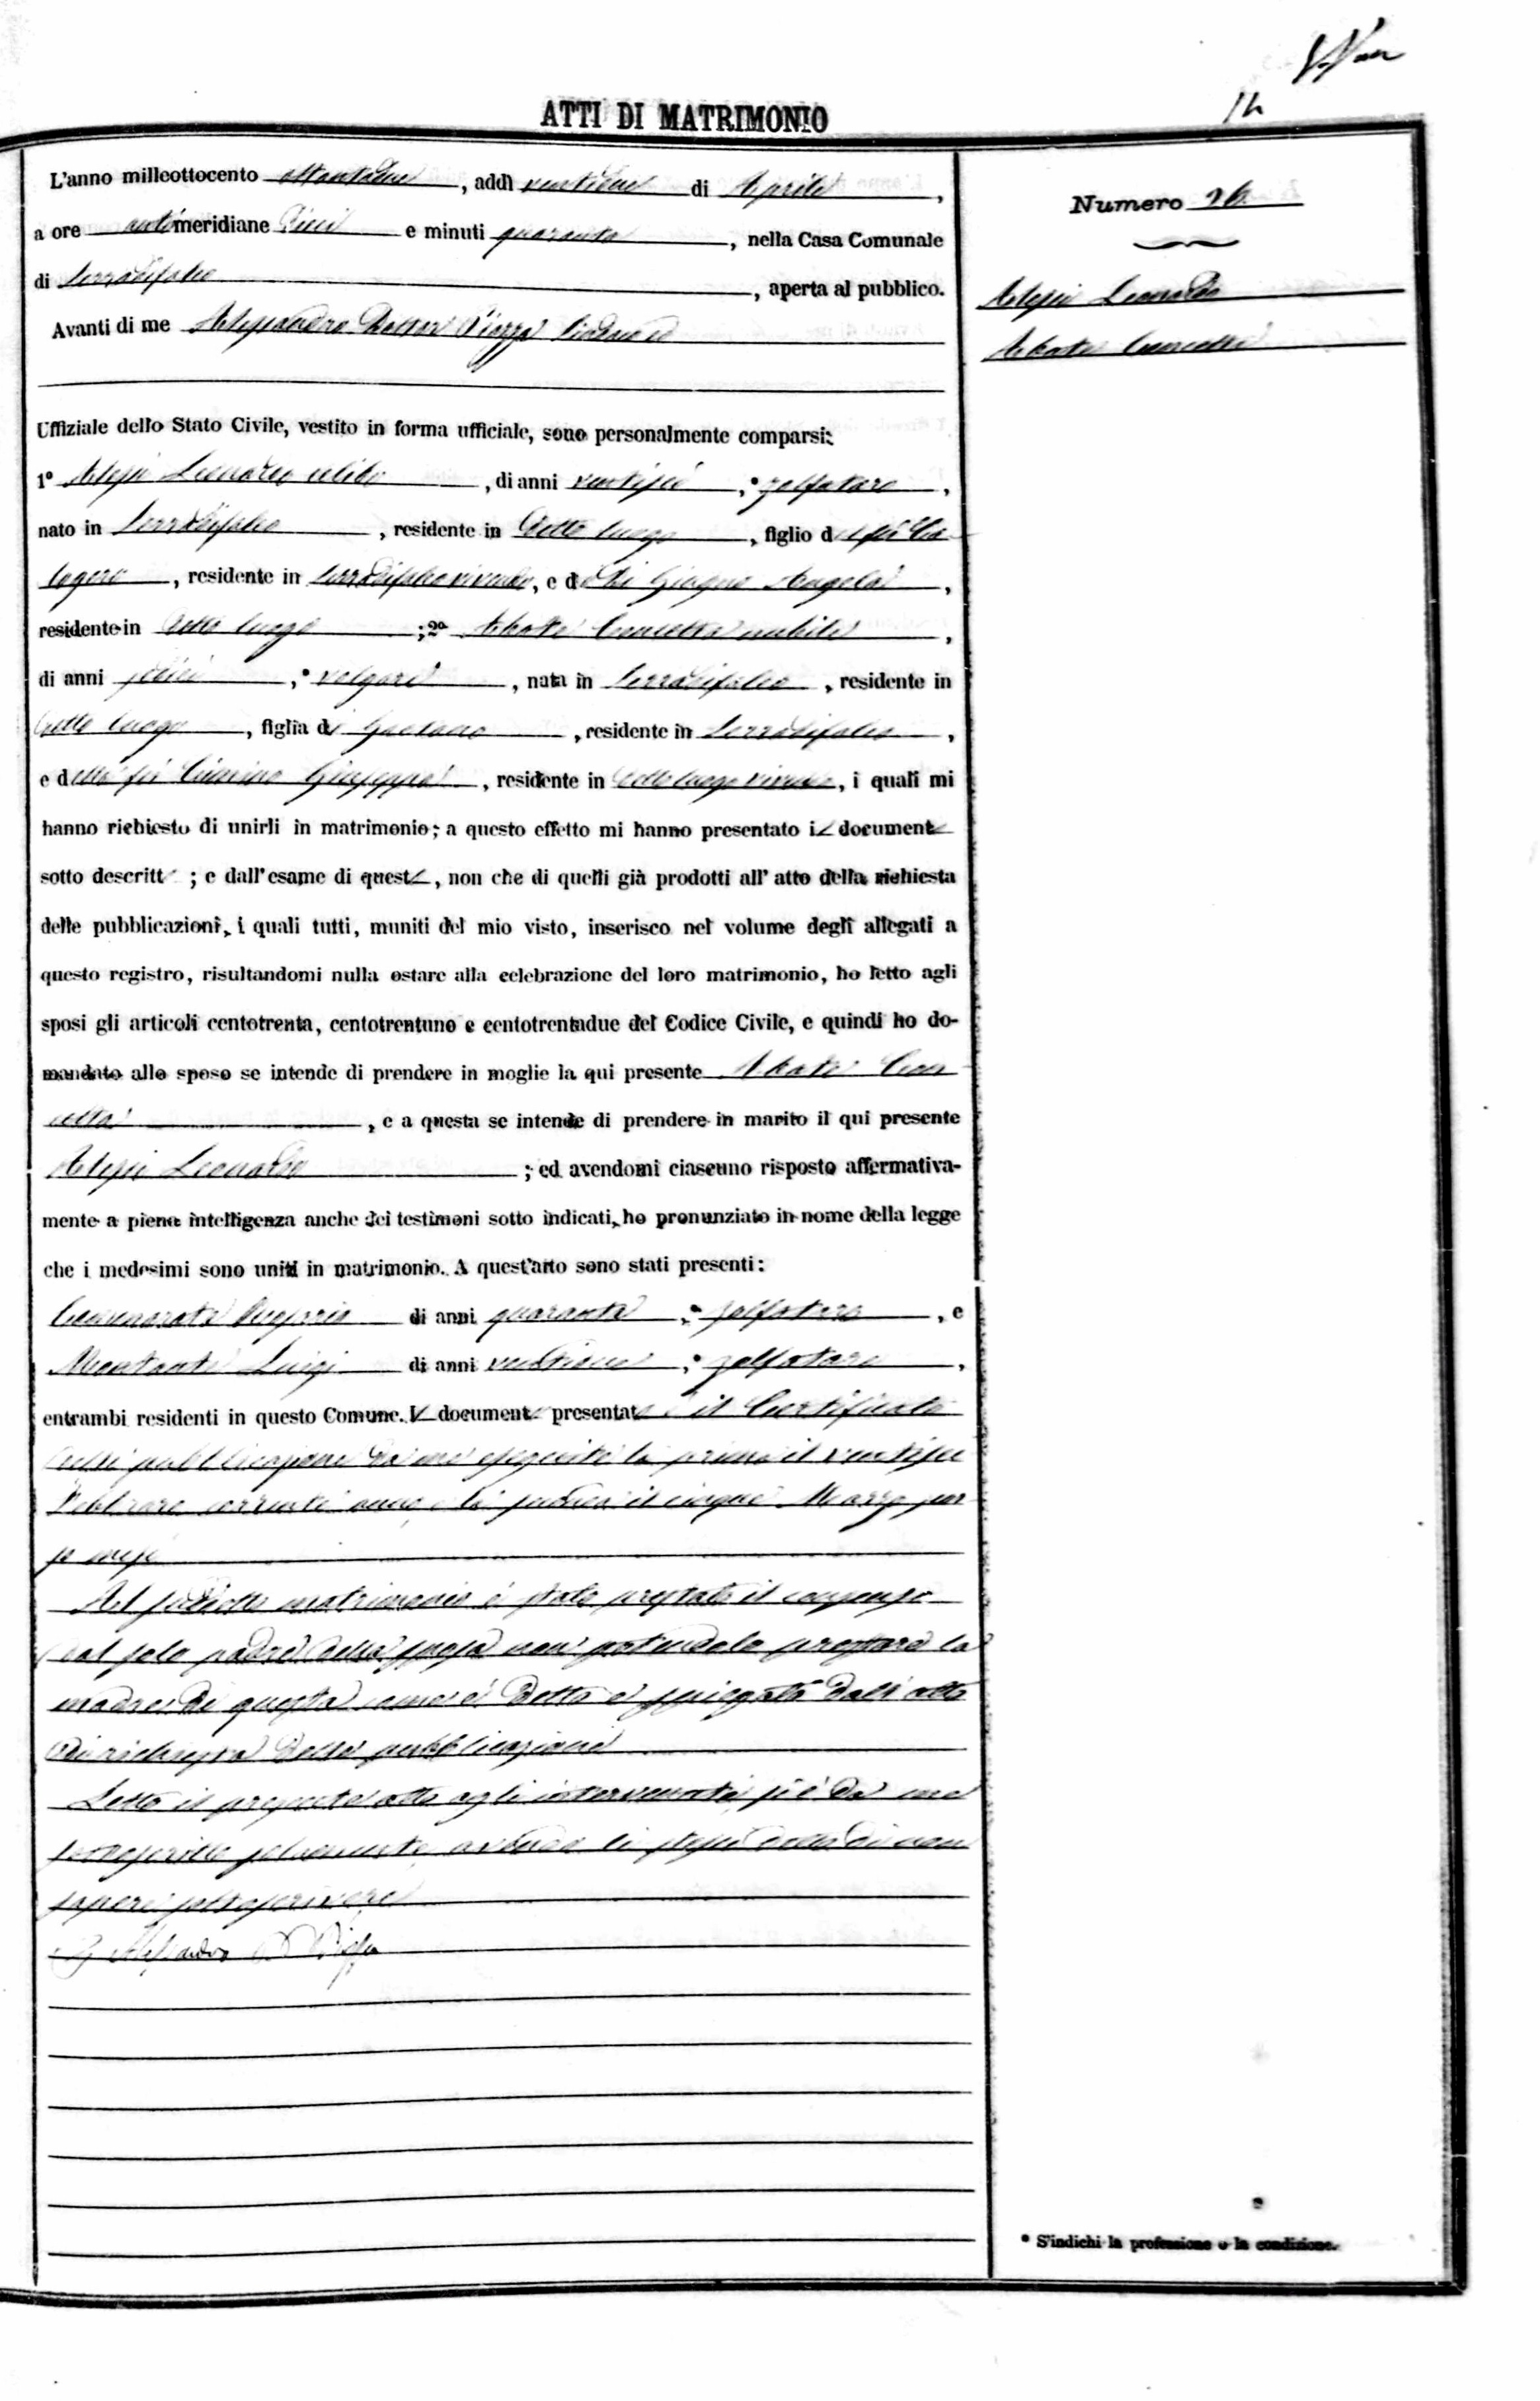 ATTI DI MATRIMONIO
L'anno milleottocento ottantadue, addì ventidue di Aprile,
a ore antimeridiane Dieci e minuti quaranta, nella Casa Comunale
di Serradifalco, aperta al pubblico.
Avanti di me Alessandro Dottor Piazza Sindaco ed
Uffiziale dello Stato Civile, vestito in forma ufficiale, sono personalmente comparsi:
1° Alessi Leonardo celibe, di anni ventisei, • zolfataro,
nato in Serradifalco, residente in detto luogo, figlio del fu Ca-
logero, residente in Serradifalco vivendo, e di Di Giugno Angela,
residente in detto luogo; 2° Abate Concetta nubile,
di anni sedici, • volgare, nata in Serradifalco, residente in
detto luogo, figlia di Gaetano, residente in Serradifalco,
e della fu Cimino Giuseppa, residente in detto luogo vivendo, i quali mi
hanno richiesto di unirli in matrimonio; a questo effetto mi hanno presentato i document
sotto descritt ; e dall'esame di quest , non che di quelli già prodotti all'atto della richiesta
delle pubblicazioni, i quali tutti, muniti del mio visto, inserisco nel volume degli allegati a
questo registro, risultandomi nulla ostare alla celebrazione del loro matrimonio, ho letto agli
sposi gli articoli centotrenta, centotrentuno e centotrentadue del Codice Civile, e quindi ho do-
mandato allo sposo se intende di prendere in moglie la qui presente Abate Con
cetta, e a questa se intende di prendere in marito il qui presente
Alessi Leonardo; ed avendomi ciascuno risposto affermativa-
mente a piena intelligenza anche dei testimoni sotto indicati, ho pronunziato in nome della legge
che i medesimi sono uniti in matrimonio. A quest'atto sono stati presenti:
Cammarata di anni quaranta, • zolfataro, e
Montante Luigi di anni, • zolfataro,
entrambi residenti in questo Comune. I document presentat è il Certificato
delle pubblicazioni da me eseguite la prima il ventisei
Febbraro corrente anno e la seconda il cinque Marzo pas
so mese
Al suddetto matrimonio è stato prestato il consenso
dal solo padre della sposa non potendolo prestare la
madre di questa come è detto e spiegato dall'atto
di richiesta delle pubblicazioni
Letto il presente atto agli intervenuti si è da me
sottoscritto solamente avendo li stessi detto di non
sapere sottoscrivere
Alessandro Dr Piazza
Numero 26
Alessi Leonardo
Abate Concetta
• S'indichi la professione o la condizione.